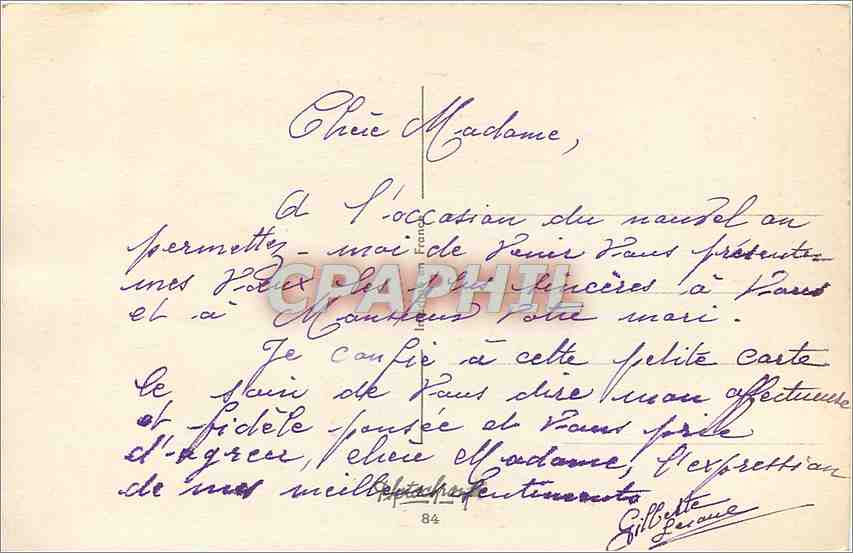 Chère Madame,
A l'occasion du nouvel an
permettez-moi de venir vous présenter
mes vœux les plus sincères à vous
et à Monsieur votre mari.
Je confie à cette petite carte
le soin de vous dire mon affectueuse
et fidèle pensée et vous prie
d'agréer, chère Madame, l'expression
de mes meilleurs sentiments
Gilberte
CPAPHIL
en France
84